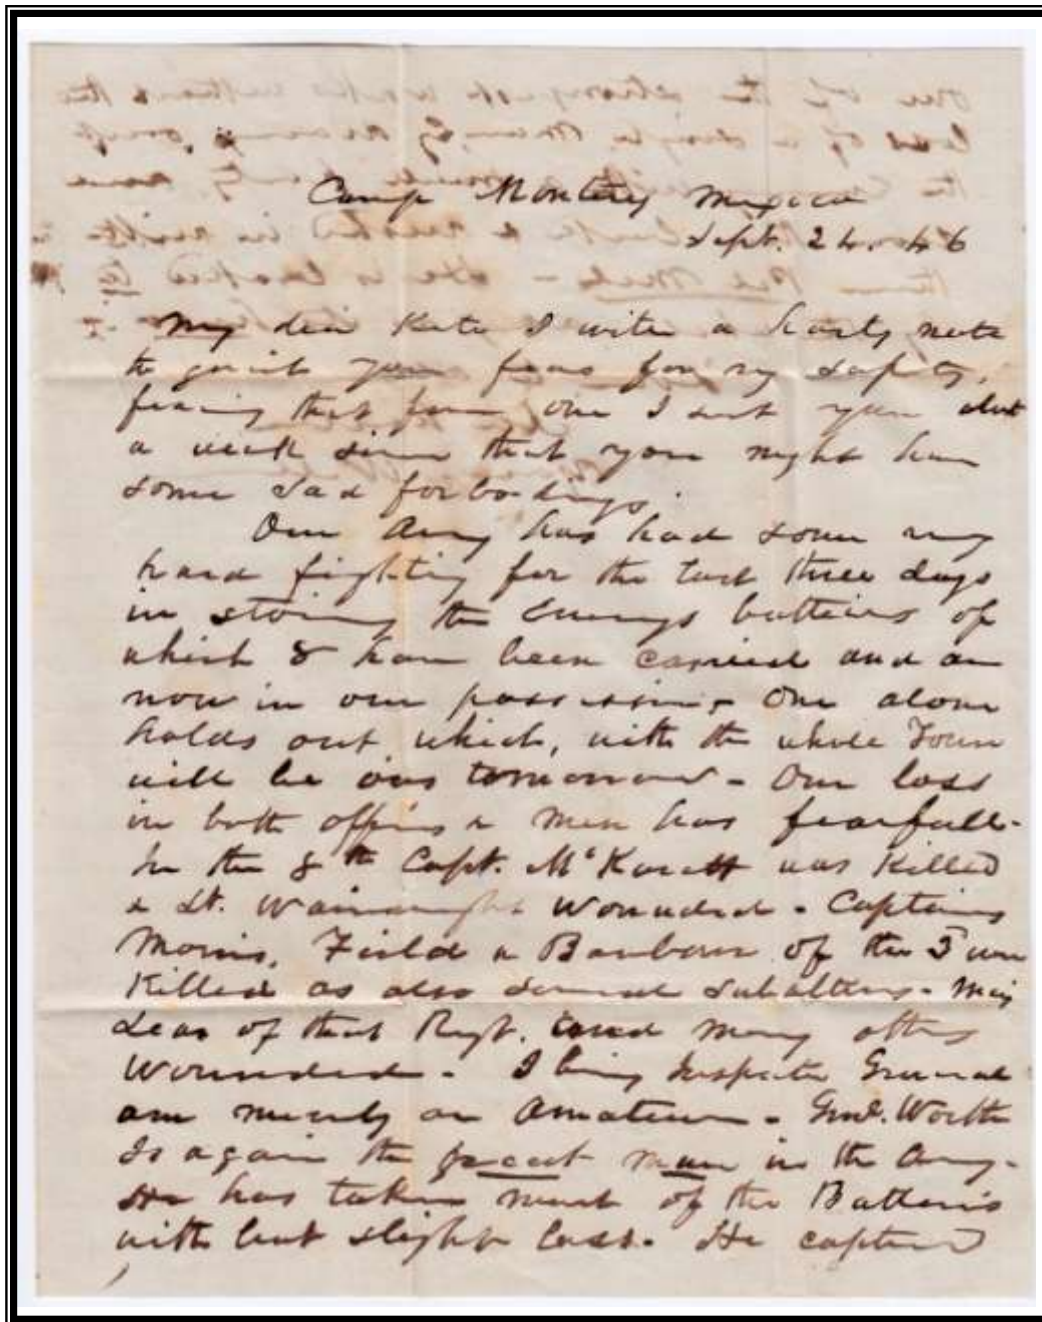 Camp Monterey Mexico
Sept. 24. 46
My dear Kate I write a hasty note
to quiet your fears for my safety,
fearing that from one I sent you abt
a week since that you might have
some sad forbodings.
Our Army has had some very
hard fighting for the last three days
in storming the Enemys batteries of
which 8 have been carried and are
now in our possession - One alone
holds out which, with the whole Town
will be ours tomorrow - Our loss
in both officers & men has fearfull -
In the 8th Capt. McKavett was Killed
& Lt. Wainwright Wounded - Captains
Morris, Field & Barbour of the 3 were
Killed as also several subalterns - Maj
Lear of that Regt. and many others
Wounded - I being Inspector General
am merely an Amateur - Genl. Worth
Is again the great man in the Army -
He has taken most of the Batteries
with but slight loss - He captured